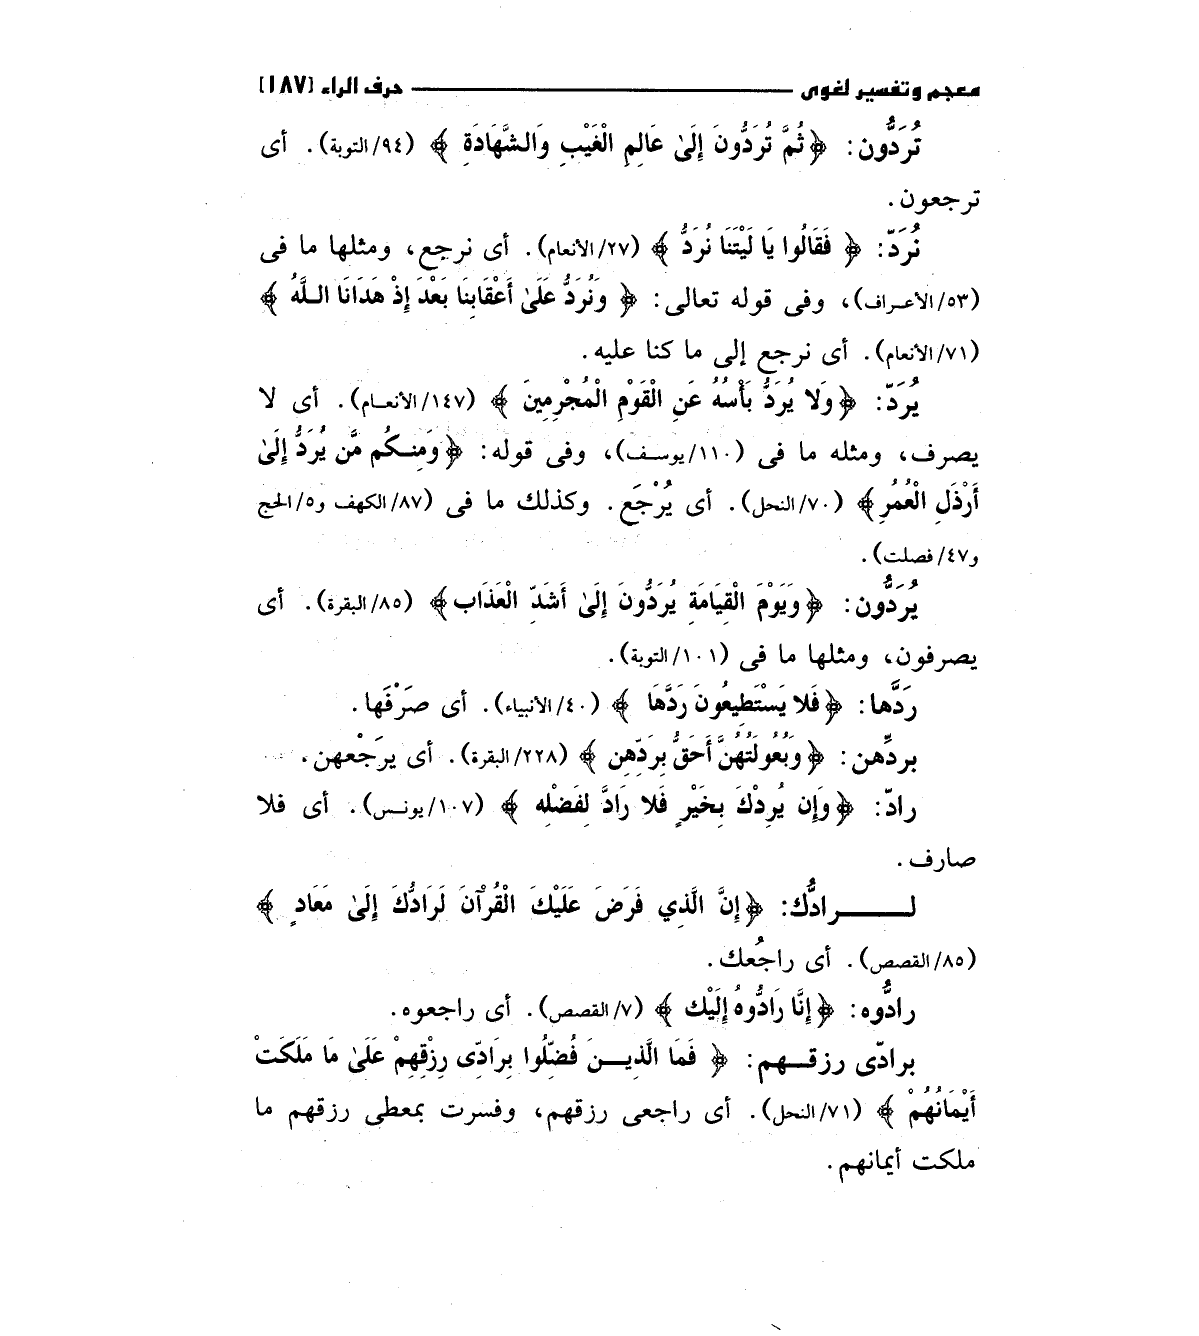 معجم وتفسير لغوى ـــــــــــــــــ حرف الراء [١٨٧]
تُرَدُّون: ﴿ثُمَّ تُرَدُّونَ إِلَىٰ عَالِمِ الْغَيْبِ وَالشَّهَادَةِ ﴾ (٩٤/التوبة). أى
ترجعون.
نُرَدّ: ﴿ فَقَالُوا يَا لَيْتَنَا نُرَدُّ ﴾ (٢٧/الأنعام). أى نرجع، ومثلها ما فى
(٥٣/الأعراف)، وفى قوله تعالى: ﴿ وَنُرَدُّ عَلَىٰ أَعْقَابِنَا بَعْدَ إِذْ هَدَانَا اللَّهُ ﴾
(٧١/الأنعام). أى نرجع إلى ما كنا عليه.
يُرَدّ: ﴿وَلا يُرَدُّ بَأْسُهُ عَنِ الْقَوْمِ الْمُجْرِمِينَ ﴾ (١٤٧/الأنعام). أى لا
يصرف، ومثله ما فى (١١٠/يوسف)، وفى قوله: ﴿وَمِنكُم مَّن يُرَدُّ إِلَىٰ
أَرْذَلِ الْعُمُرِ﴾ (٧٠/النحل). أى يُرْجَع. وكذلك ما فى (٨٧/الكهف و٥/الحج
و٤٧/فصلت).
يُرَدُّون: ﴿وَيَوْمَ الْقِيَامَةِ يُرَدُّونَ إِلَىٰ أَشَدِّ الْعَذَابِ﴾ (٨٥/البقرة). أى
يصرفون، ومثلها ما فى (١٠١/التوبة).
رَدَّها: ﴿فَلا يَسْتَطِيعُونَ رَدَّهَا ﴾ (٤٠/الأنبياء). أى صَرْفَها.
بردِّهن: ﴿وَبُعُولَتُهُنَّ أَحَقُّ بِرَدِّهِن ﴾ (٢٢٨/البقرة). أى يرَجْعهن.
رادّ: ﴿وَإِن يُرِدْكَ بِخَيْرٍ فَلا رَادَّ لِفَضْلِه ﴾ (١٠٧/يونس). أى فلا
صارف.
لــرادُّك: ﴿إِنَّ الَّذِي فَرَضَ عَلَيْكَ الْقُرْآنَ لَرَادُّكَ إِلَىٰ مَعَادٍ ﴾
(٨٥/القصص). أى راجُعك.
رادُّوه: ﴿إِنَّا رَادُّوهُ إِلَيْك ﴾ (٧/القصص). أى راجعوه.
برادّى رزقهم: ﴿ فَمَا الَّذِينَ فُضِّلُوا بِرَادِّى رِزْقِهِمْ عَلَىٰ مَا مَلَكَتْ
أَيْمَانُهُمْ ﴾ (٧١/النحل). أى راجعى رزقهم، وفسرت بمعطى رزقهم ما
ملكت أيمانهم.